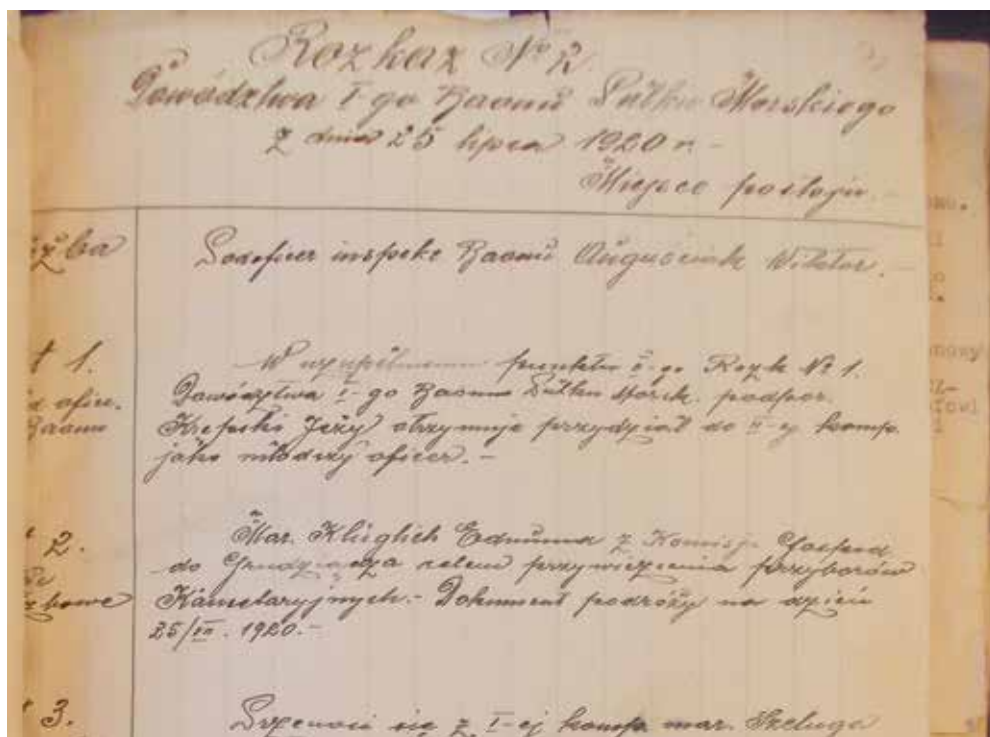 Rozkaz № 2.
Dowództwa I-go Baonu Pułku Morskiego
z dnia 25 lipca 1920 r. -
Miejsce postoju. -
Podoficer inspekc Baonu Auguściak Wiktor. -
t 1.
W uzupełnieniu punktu -go Rozk № 1.
oficer.
Dowództwa I-go Baonu Pułku Morsk. podpor.
Baonu
Krepski Jeży otrzymuje przydział do II-ej komp.
jako młodszy oficer. -
2.
Mar. Edmunda z Komisji Gospod
do Grudziądza celem przywiezienia przyborów
Kancelaryjnych. - Dokument podróży na dzień
25/VII. 1920. -
3.
się z I-ej komp. mar. Szeluga